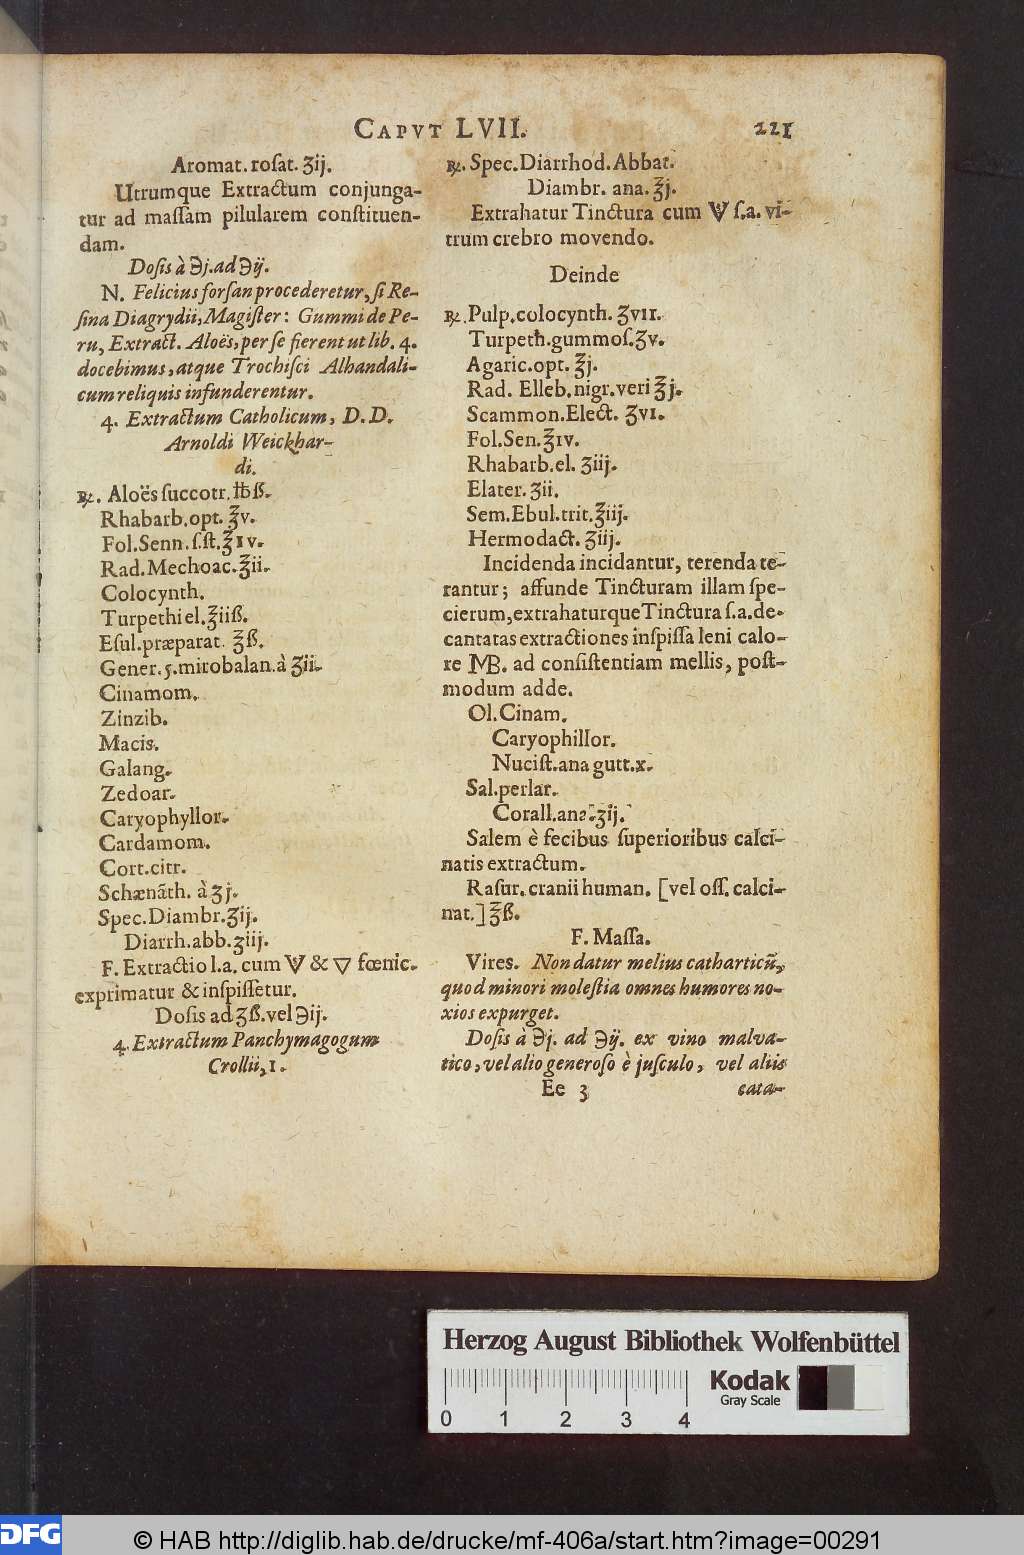 CAPVT LVII. 221
Aromat. rosat. ʒij.
Utrumque Extractum conjunga-
tur ad massam pilularem constituen-
dam.
Dosis à ℈j. ad ℈ij.
N. Felicius forsan procederetur, si Re-
sina Diagrydii, Magister: Gummi de Pe-
ru, Extract. Aloës, per se fierent ut lib. 4.
docebimus, atque Trochisci Alhandali-
cum reliquis infunderentur.
4. Extractum Catholicum, D. D.
Arnoldi Weickhar-
di.
℞. Aloës succotr. ℔ß.
Rhabarb. opt. ℥v.
Fol. Senn. s. st. ℥iv.
Rad. Mechoac. ℥ii.
Colocynth.
Turpethi el. ℥iiß.
Esul. præparat. ℥ß.
Gener. 5. mirobalan. à ʒii.
Cinamom.
Zinzib.
Macis.
Galang.
Zedoar.
Caryophyllor.
Cardamom.
Cort. citr.
Schænãth. à ʒj.
Spec. Diambr. ʒij.
Diarrh. abb. ʒiij.
F. Extractio l. a. cum 🜈 & ▽ fœnic.
exprimatur & inspissetur.
Dosis ad ʒß. vel ℈ij.
4. Extractum Panchymagogum
Crollii, 1.
℞. Spec. Diarrhod. Abbat.
Diambr. ana. ℥j.
Extrahatur Tinctura cum 🜈 s. a. vi-
trum crebro movendo.
Deinde
℞. Pulp. colocynth. ʒvii.
Turpeth. gummos. ʒv.
Agaric. opt. ℥j.
Rad. Elleb. nigr. veri ℥j.
Scammon. Elect. ʒvi.
Fol. Sen. ℥iv.
Rhabarb. el. ʒiij.
Elater. ʒii.
Sem. Ebul. trit. ℥iij.
Hermodact. ʒiij.
Incidenda incidantur, terenda te-
rantur; affunde Tincturam illam spe-
cierum, extrahaturque Tinctura s. a. de-
cantatas extractiones inspissa leni calo-
re MB. ad consistentiam mellis, post-
modum adde.
Ol. Cinam.
Caryophillor.
Nucist. ana gutt. x.
Sal. perlar.
Corall. ana. ʒij.
Salem è fecibus superioribus calci-
natis extractum.
Rasur. cranii human. [vel oss. calci-
nat.] ℥ß.
F. Massa.
Vires. Non datur melius catharticũ,
quod minori molestia omnes humores no-
xios expurget.
Dosis à ℈j. ad ℈ij. ex vino malva-
tico, vel alio generoso è jusculo, vel aliis
Ee 3 cata-
Herzog August Bibliothek Wolfenbüttel
Kodak
Gray Scale
0 1 2 3 4
DFG
© HAB http://diglib.hab.de/drucke/mf-406a/start.htm?image=00291